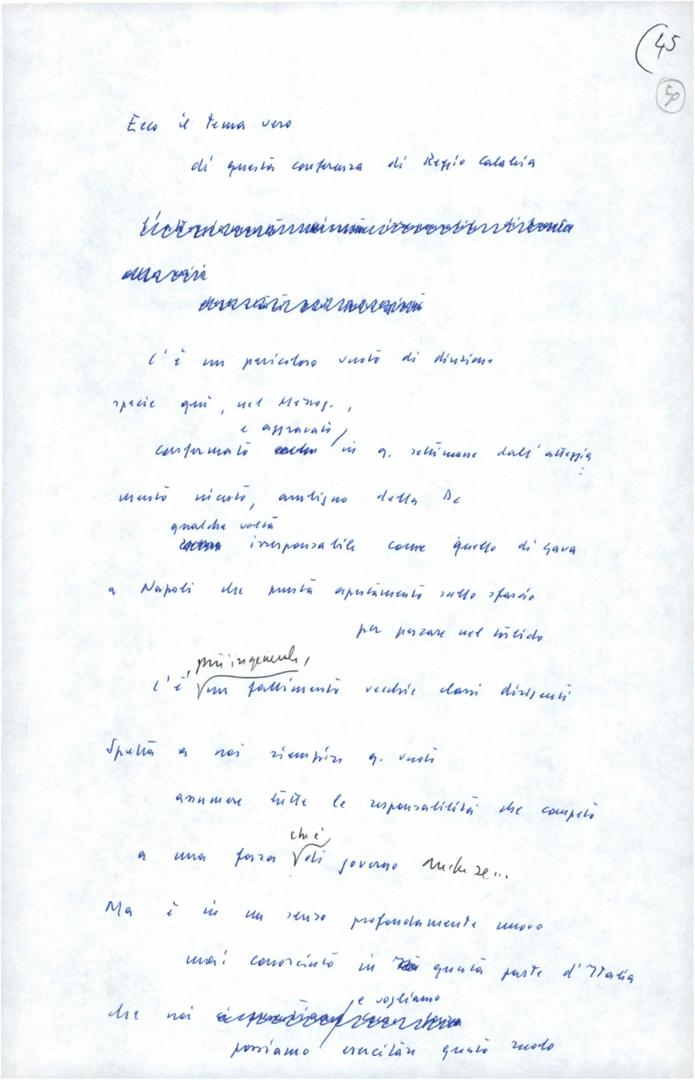 45
50
Ecco il tema vero
di questa conferenza di Reggio Calabria
C'è un pericoloso vuoto di direzione
specie qui, nel Mezzog.,
e aggravato,
confermato in q. settimane dall'atteggia
mento ambiguo della Dc
qualche volta
irresponsabile come quello di Gava
a Napoli che punta apertamente sullo sfascio
per pescare nel torbido
, più in generale,
C'è un fallimento vecchie classi dirigenti
Spetta a noi riempire q. vuoti
assumere tutte le responsabilità che competo
che è
a una forza di governo anche se...
Ma è in un senso profondamente nuovo
mai conosciuto in questa parte d'Italia
e vogliamo
che noi
possiamo esercitare questo ruolo